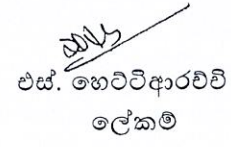 එස්. හෙට්ටිආරච්චි
ලේකම්